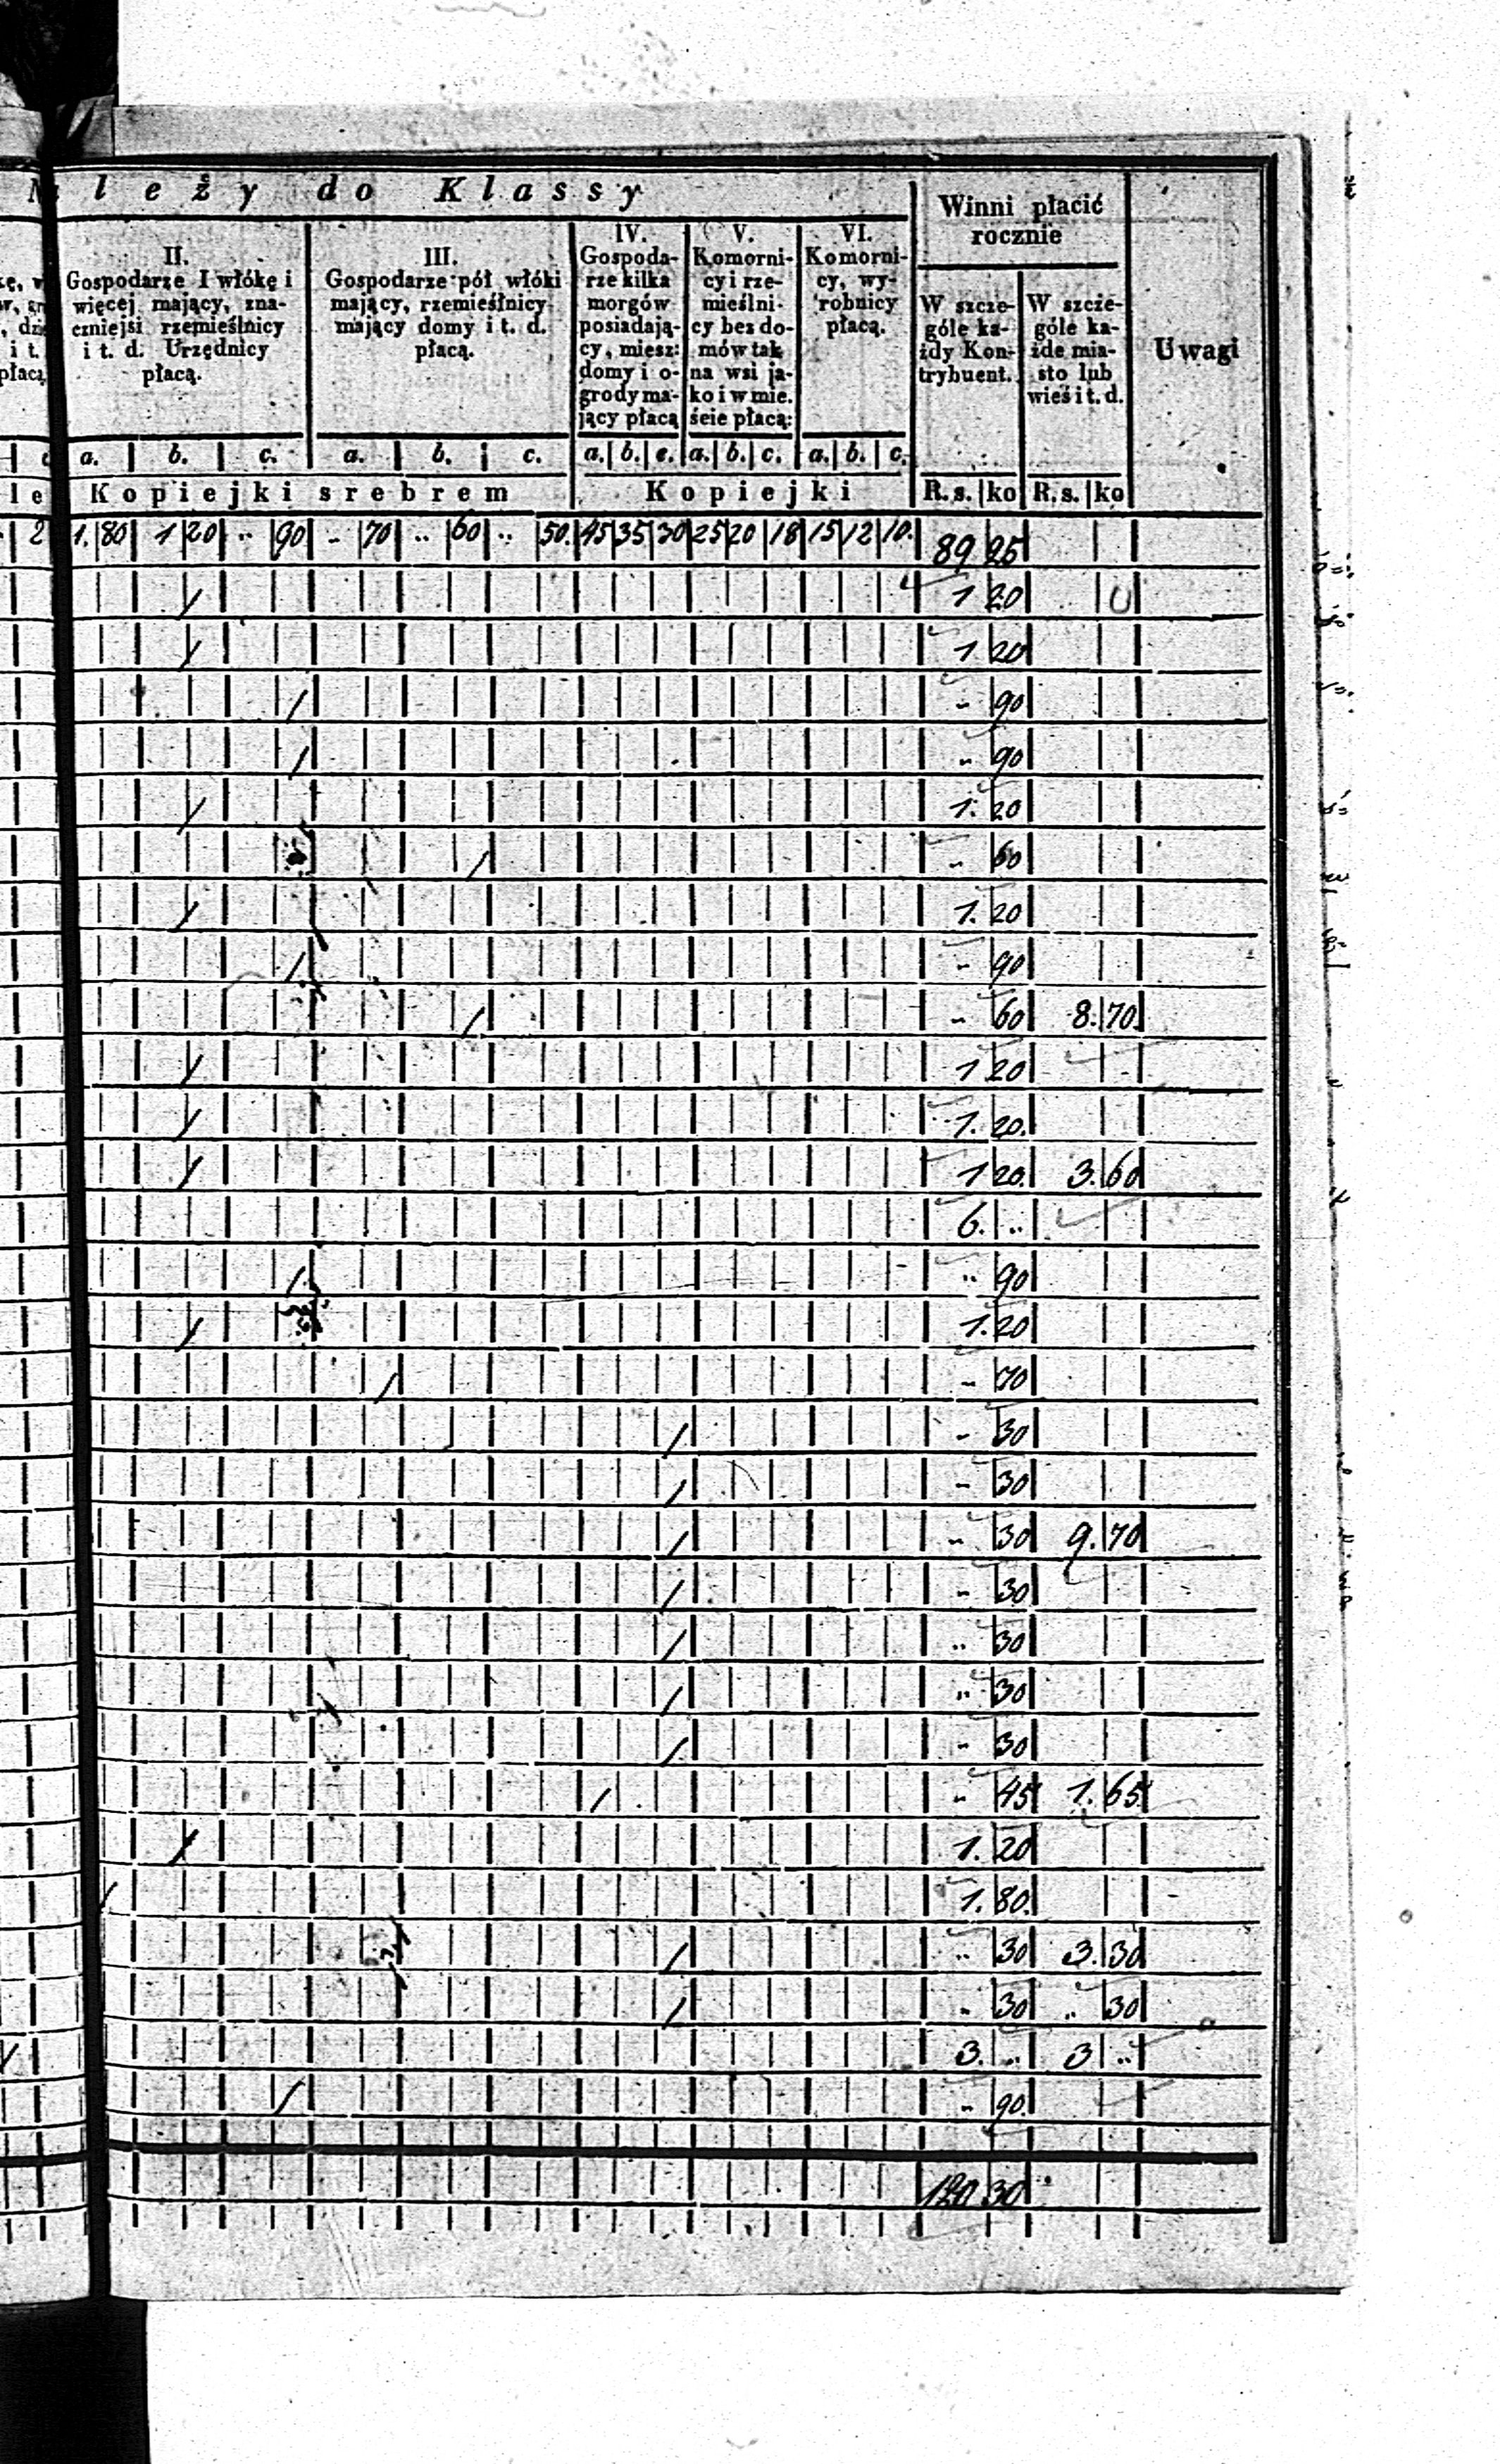 leży do Klassy
Winni płacić
rocznie
II.
Gospodarze I włókę i
więcej mający, zna-
czniejsi rzemieślnicy
i t. d. Urzędnicy
płacą.
III.
Gospodarze pół włóki
mający, rzemieślnicy
mający domy i t. d.
płacą.
IV.
Gospoda-
rze kilka
morgów
posiadają-
cy, miesz:
domy i o-
grody ma-
jący płacą
V.
Komorni-
cy i rze-
mieślni-
cy bez do-
mów tak
na wsi ja-
ko i w mie.
ście płacą:
VI.
Komorni-
cy, wy-
robnicy
płacą.
W szcze-
góle ka-
żdy Kon-
trybuent.
W szcze-
góle ka-
żde mia-
sto lub
wieś i t. d.
Uwagi
i t.
płacą
a. b. c. a. b. c. a. b. c. a. b. c. a. b. c.
le Kopiejki srebrem Kopiejki R. s. ko R. s. ko
2 1. 80 1 20 .. 90 - 70 .. 60 .. 50. 45 35 30 25 20 18 15 12 10. 89 25
1 20
1 20
- 90
- 90
1. 20
- 60
1. 20
- 90
- 60 8. 70
1 20
1. 20.
1 20. 3. 60
6. ..
.. 90
1. 20
- 70
- 30
- 30
- 30 9. 70
- 30
.. 30
.. 30
- 30
- 45 1. 65
1. 20
1. 80.
.. 30 3. 30
- 30 .. 30
3. .. 3 ..
- 90.
120 30